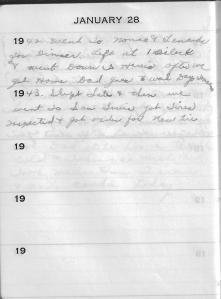 JANUARY 28
1942. Went to Nonie's &
for Dinner. Left at 1 O'clock
& went Down to after we
got Home Dad goes to work Days
1943. Slept Late & then we
went to San got Tires
Inspected & got order for New Tire
19
19
19